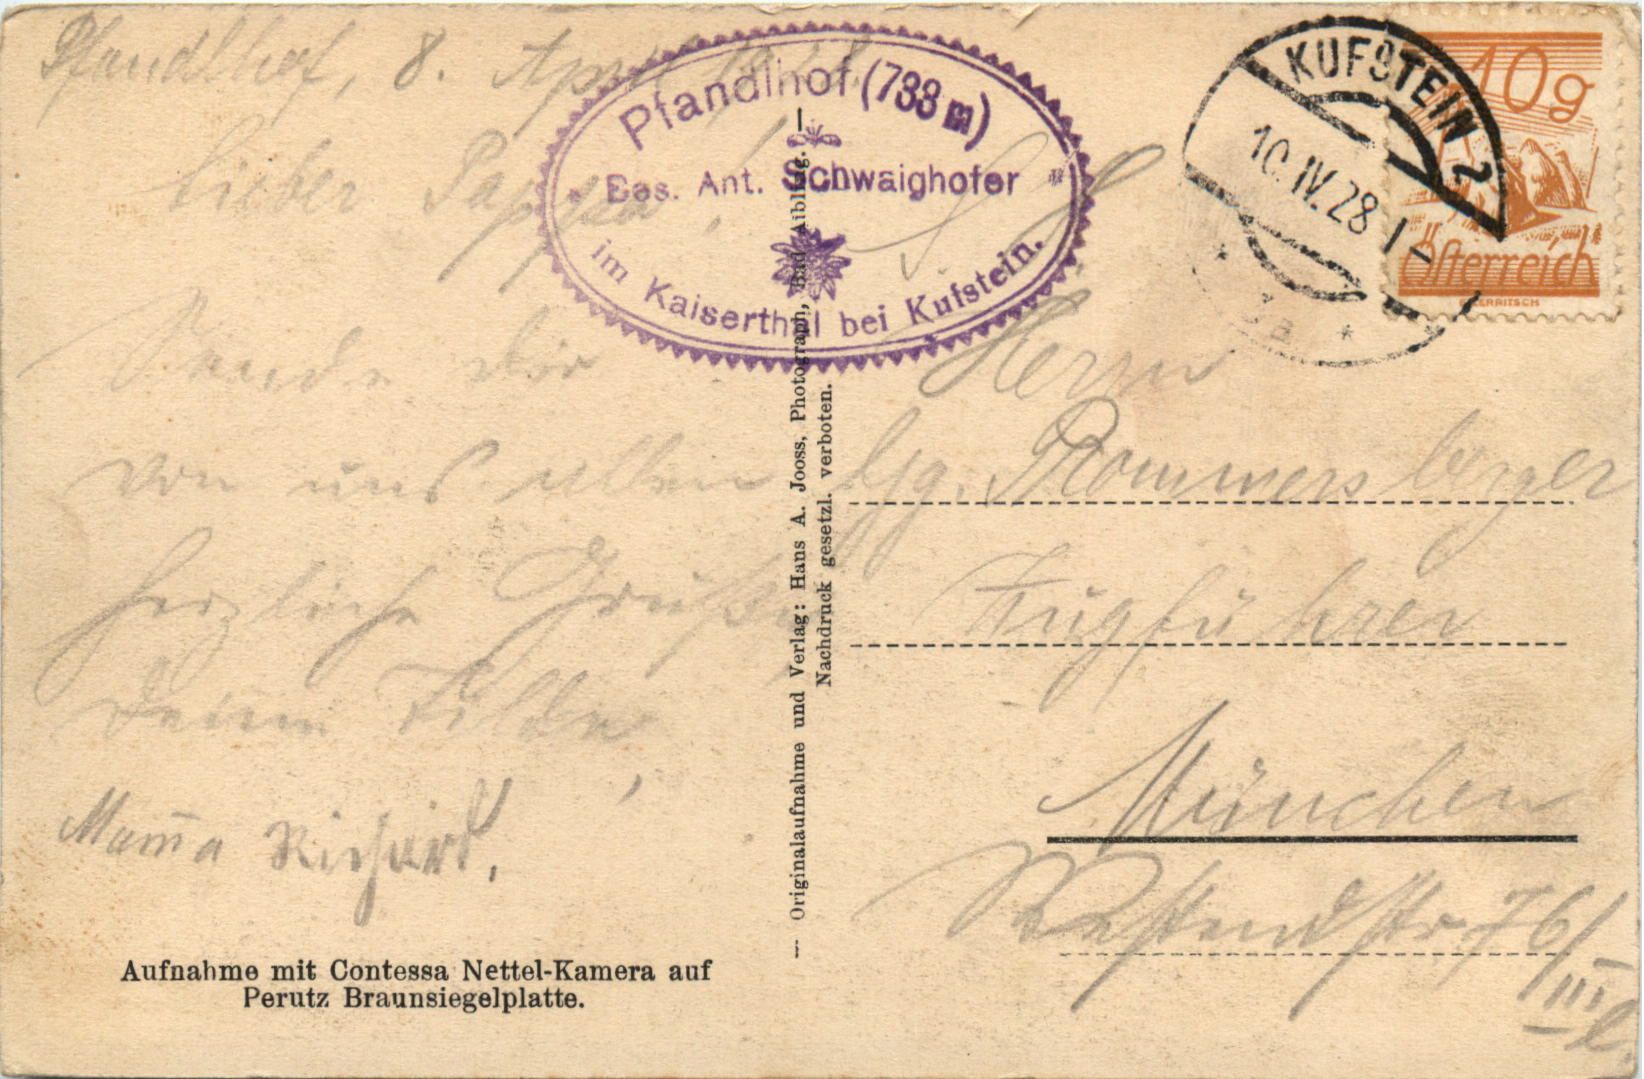 Pfandlhof, 8. April 1928.
Lieber Pappa!
Sende dir
von uns allen
herzliche Grüße
Deine Tilde,
Mama Richard.
Aufnahme mit Contessa Nettel-Kamera auf
Perutz Braunsiegelplatte.
Pfandlhof (783 m)
Bes. Ant. Schwaighofer
im Kaiserthal bei Kufstein.
— Originalaufnahme und Verlag: Hans A. Jooss, Photograph, Bad Aibling. —
Nachdruck gesetzl. verboten.
KUFSTEIN 2
10.IV.28
* 3a *
10g
Österreich
Herrn
Gg. Rommersberger
Zugführer
München
Westendstr. 76/III l.